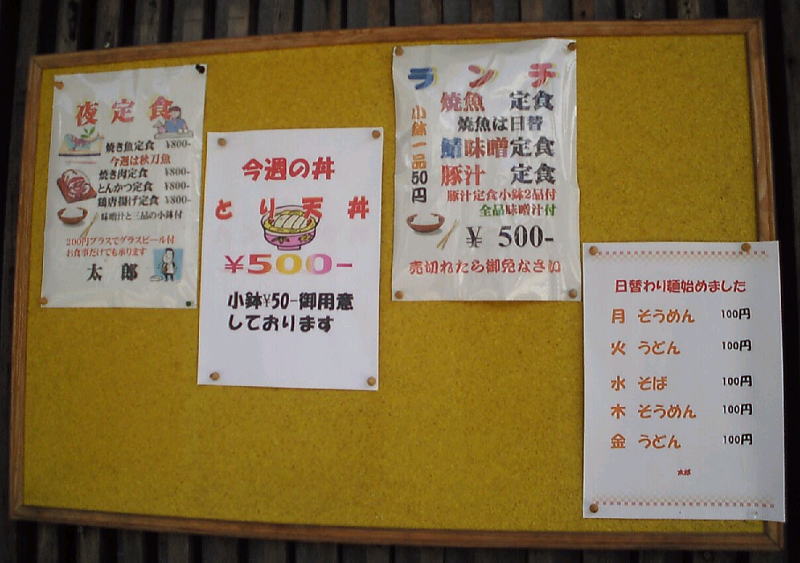 夜定食
焼き魚定食 ¥800-
今週は秋刀魚
焼き肉定食 ¥800-
とんかつ定食 ¥800-
鶏唐揚げ定食 ¥800-
味噌汁と三品の小鉢付
200円プラスでグラスビール付
お食事だけでも承ります
太郎
今週の丼
とり天丼
¥500-
小鉢¥50-御用意
しております
ランチ
焼魚 定食
焼魚は日替
鯖味噌定食
豚汁 定食
豚汁定食小鉢2品付
全品味噌汁付
小鉢一品50円
¥ 500-
売切れたら御免なさい
日替わり麺始めました
月 そうめん 100円
火 うどん 100円
水 そば 100円
木 そうめん 100円
金 うどん 100円
太郎